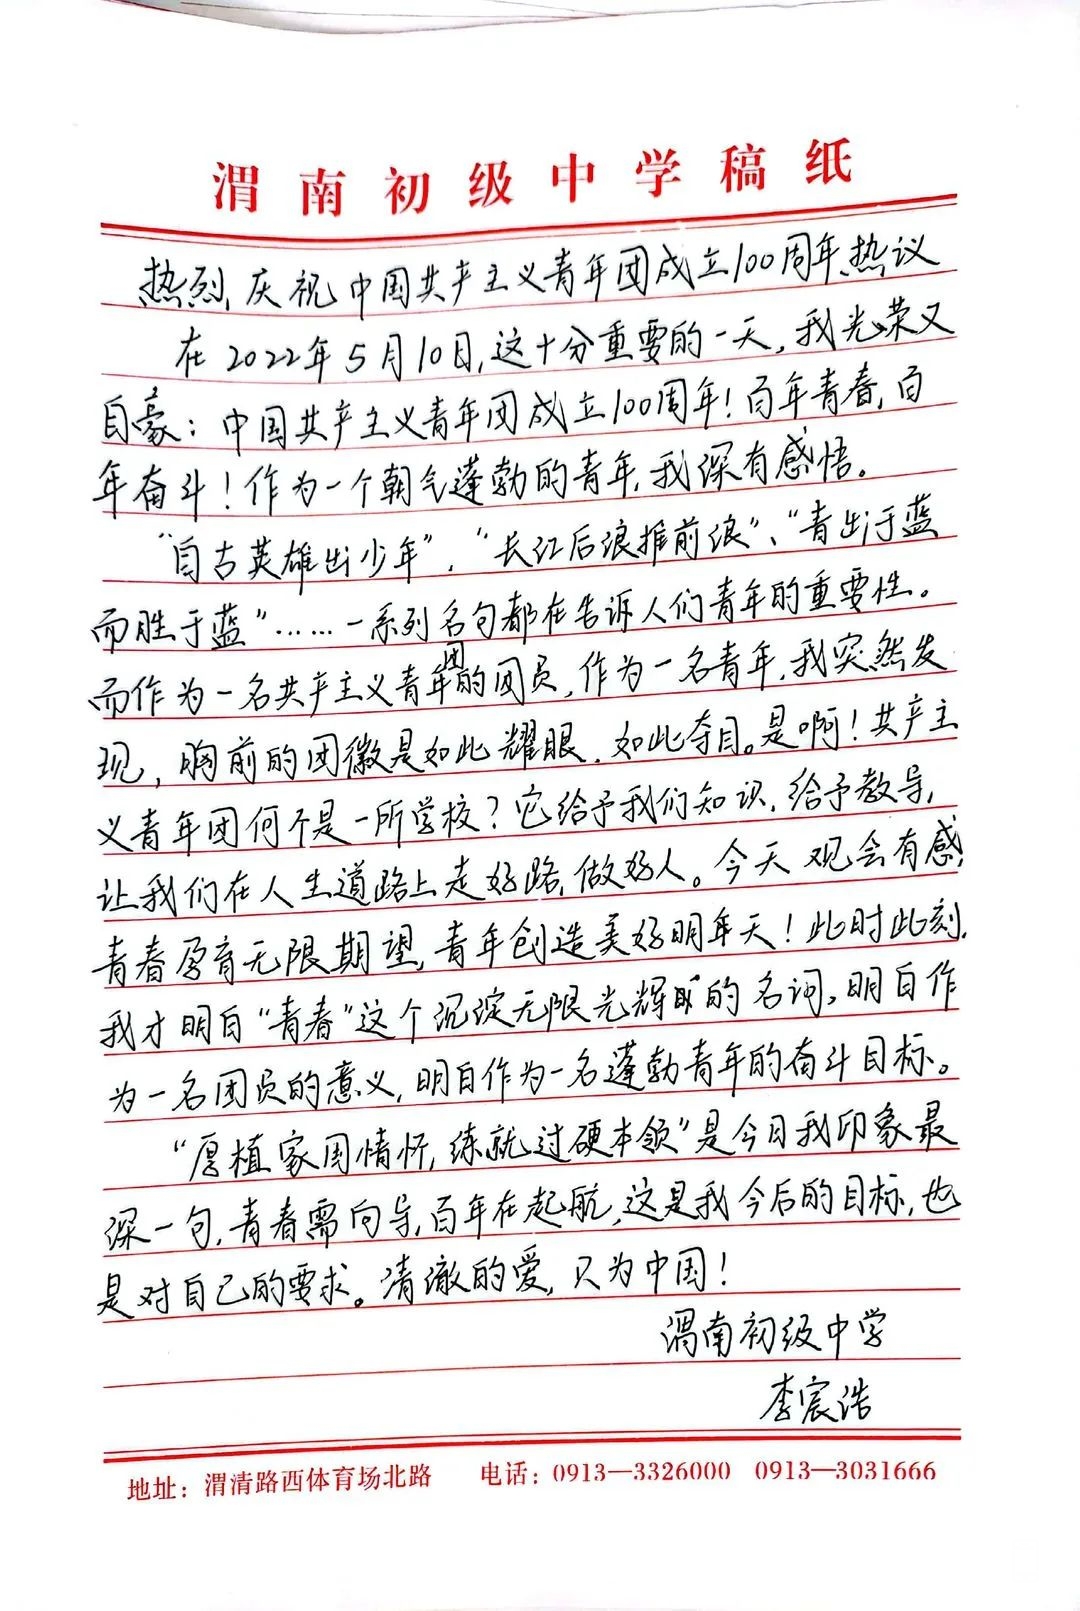 渭南初级中学稿纸
热烈庆祝中国共产主义青年团成立100周年热议
在2022年5月10日,这十分重要的一天,我光荣又
自豪:中国共产主义青年团成立100周年!百年青春,百
年奋斗!作为一个朝气蓬勃的青年,我深有感悟。
“自古英雄出少年”,“长江后浪推前浪”、“青出于蓝
而胜于蓝”……一系列名句都在告诉人们青年的重要性。
而作为一名共产主义青年团的团员,作为一名青年,我突然发
现,胸前的团徽是如此耀眼,如此夺目。是啊!共产主
义青年团何个是一所学校?它给予我们知识,给予教导,
让我们在人生道路上走好路,做好人。今天观会有感,
青春孕育无限期望,青年创造美好明年天!此时此刻,
我才明白“青春”这个沉淀无限光辉的名词,明白作
为一名团员的意义,明白作为一名蓬勃青年的奋斗目标。
“厚植家国情怀,练就过硬本领”是今日我印象最
深一句,青春需向导,百年在起航,这是我今后的目标,也
是对自己的要求。清澈的爱,只为中国!
渭南初级中学
李宸浩
地址:渭清路西体育场北路 电话:0913—3326000 0913—3031666